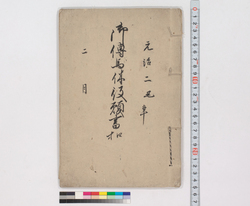 元治二丑年
御傳馬保役願書扣
二月